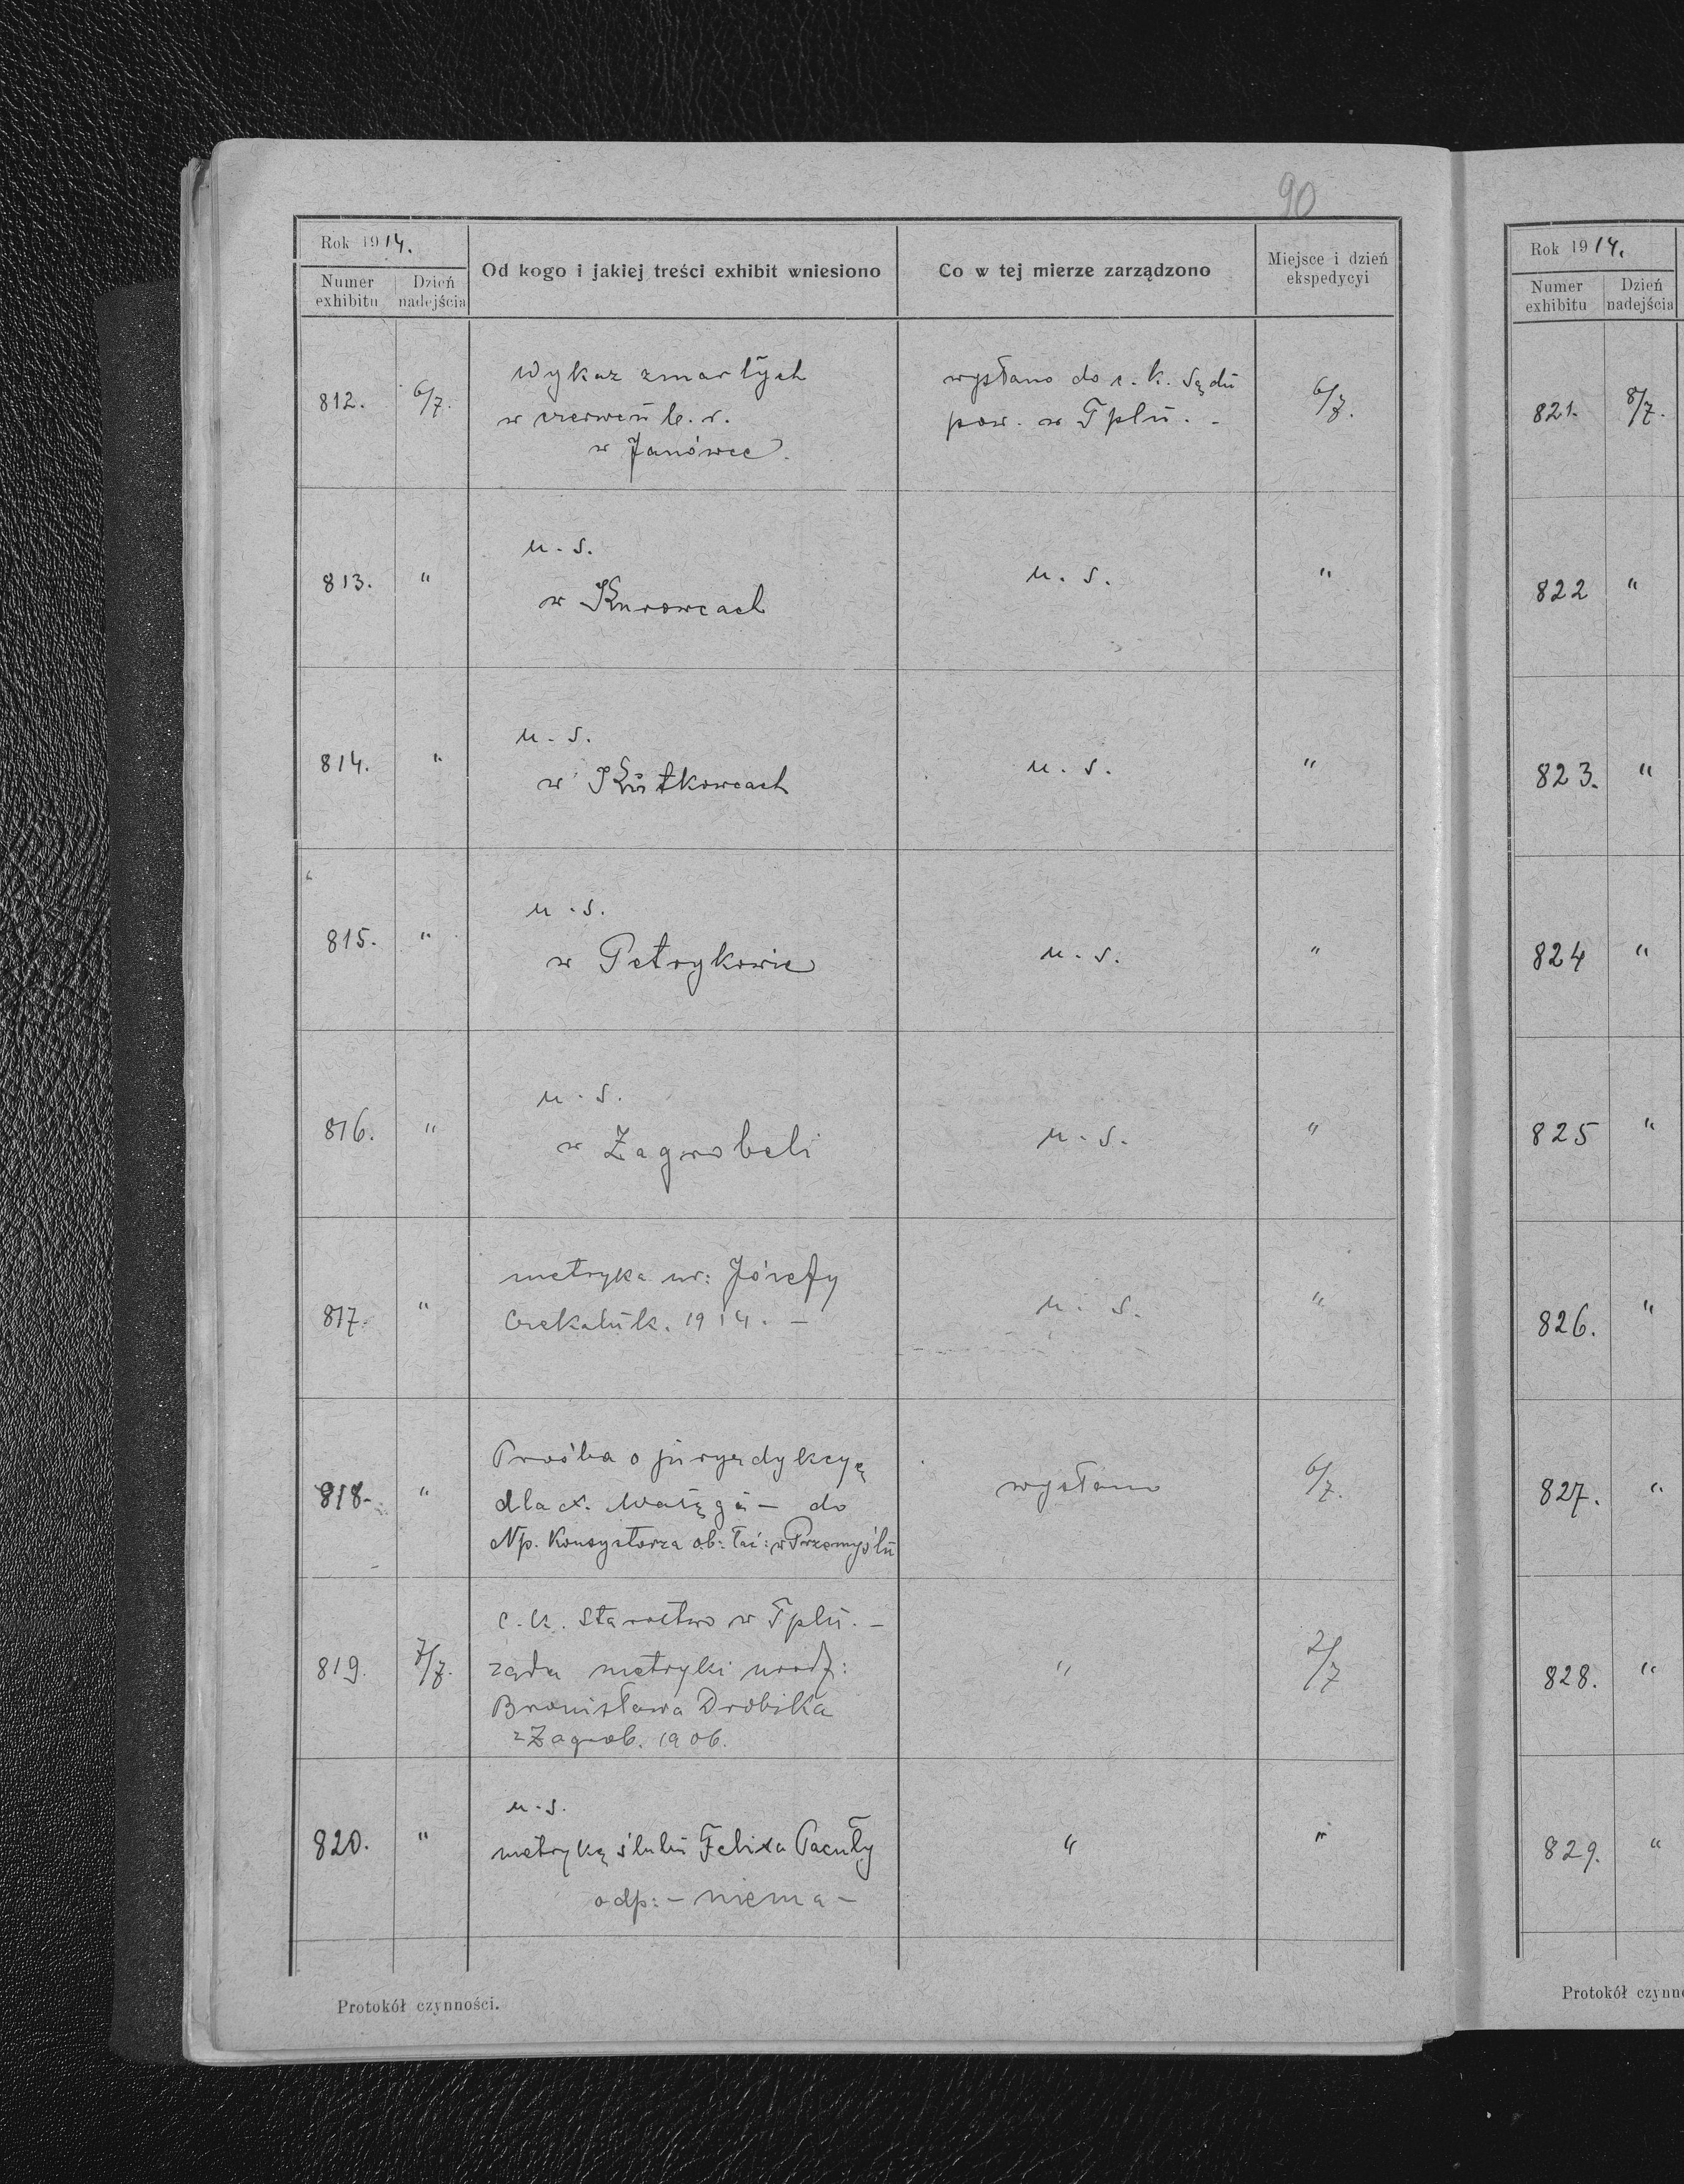 90
Rok 1914.
Numer exhibitu
Dzień nadejścia
Od kogo i jakiej treści exhibit wniesiono
Co w tej mierze zarządzono
Miejsce i dzień ekspedycyi
812. 6/7. Wykaz zmarłych wysłano do c. k. Sądu 6/7.
w czerwcu b. r. pow. w Tplu. -
w Janówce.
u. s.
813. " w Kurowcach u. s. "
u. s.
814. " w Kutkowcach u. s. "
u. s.
815. " w Petrykowie u. s. "
u. s.
816. " w Zagrobeli u. s. "
metryka ur: Józefy
817. " Czekaluk. 1914. — u. s. "
Prośba o jurysdykcyę
818. " dla x. — do wysłano 6/7.
Np. Konsystorza ob: łać: w Przemyślu
c. k. Starostwo w Tplu. —
819. 7/7. żąda metryki urodz: " 2/7
Bronisława Drobika
z Zagrob. 1906.
u. s.
820. " metrykę ślubu Felixa Pacuły " "
odp: — niema —
Protokół czynności.
Rok 1914.
Numer exhibitu
Dzień nadejścia
821. 8/7.
822 "
823. "
824 "
825 "
826. "
827. "
828. "
829. "
Protokół czynno